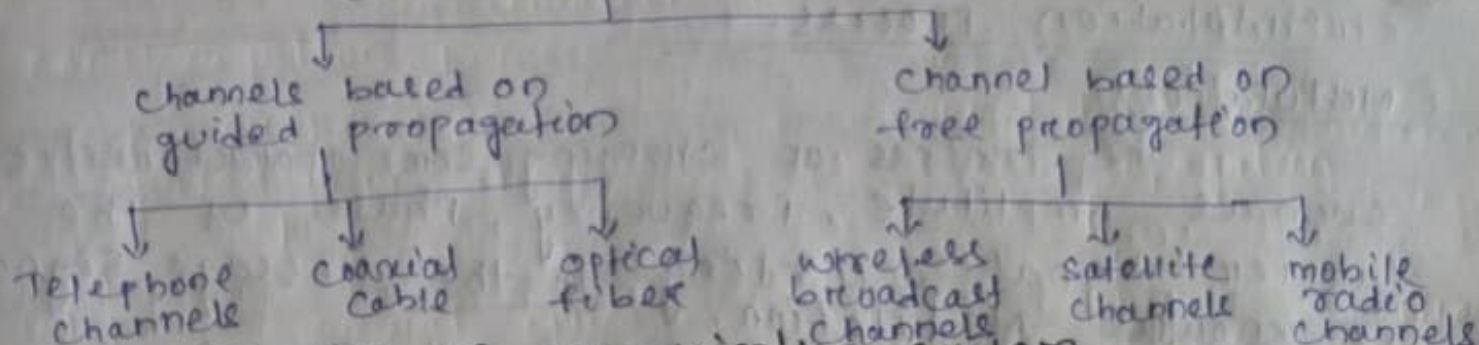 channels based on
guided propagation
channel based on
free propagation
Telephone
channels
coaxial
cable
optical
fiber
wireless
broadcast
channels
satellite
channels
mobile
radio
channels